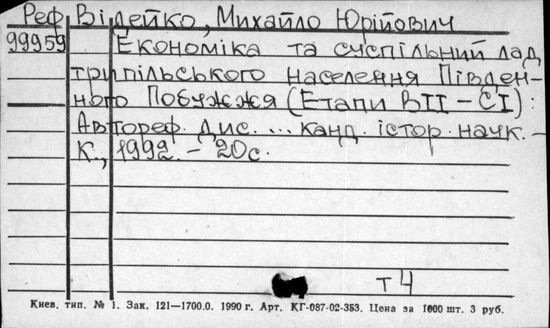 Реф Відейко, Михайло Юрійович
99959 Економіка та суспільний лад
трипільського населення Півден-
ного Побужжя (Етапи ВII – СI):
Автореф. дис. ... канд. істор. наук. –
К., 1992. – 20с.
т 4
Киев. тип. № 1. Зак. 121—1700.0. 1990 г. Арт. КГ-087-02-353. Цена за 1000 шт. 3 руб.